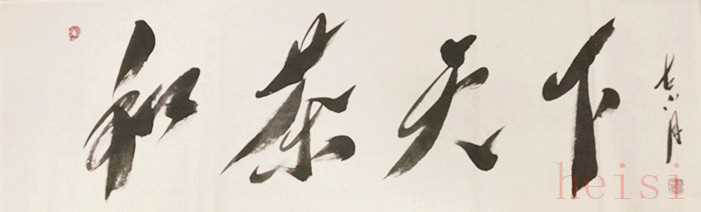 和茶天下
heisi